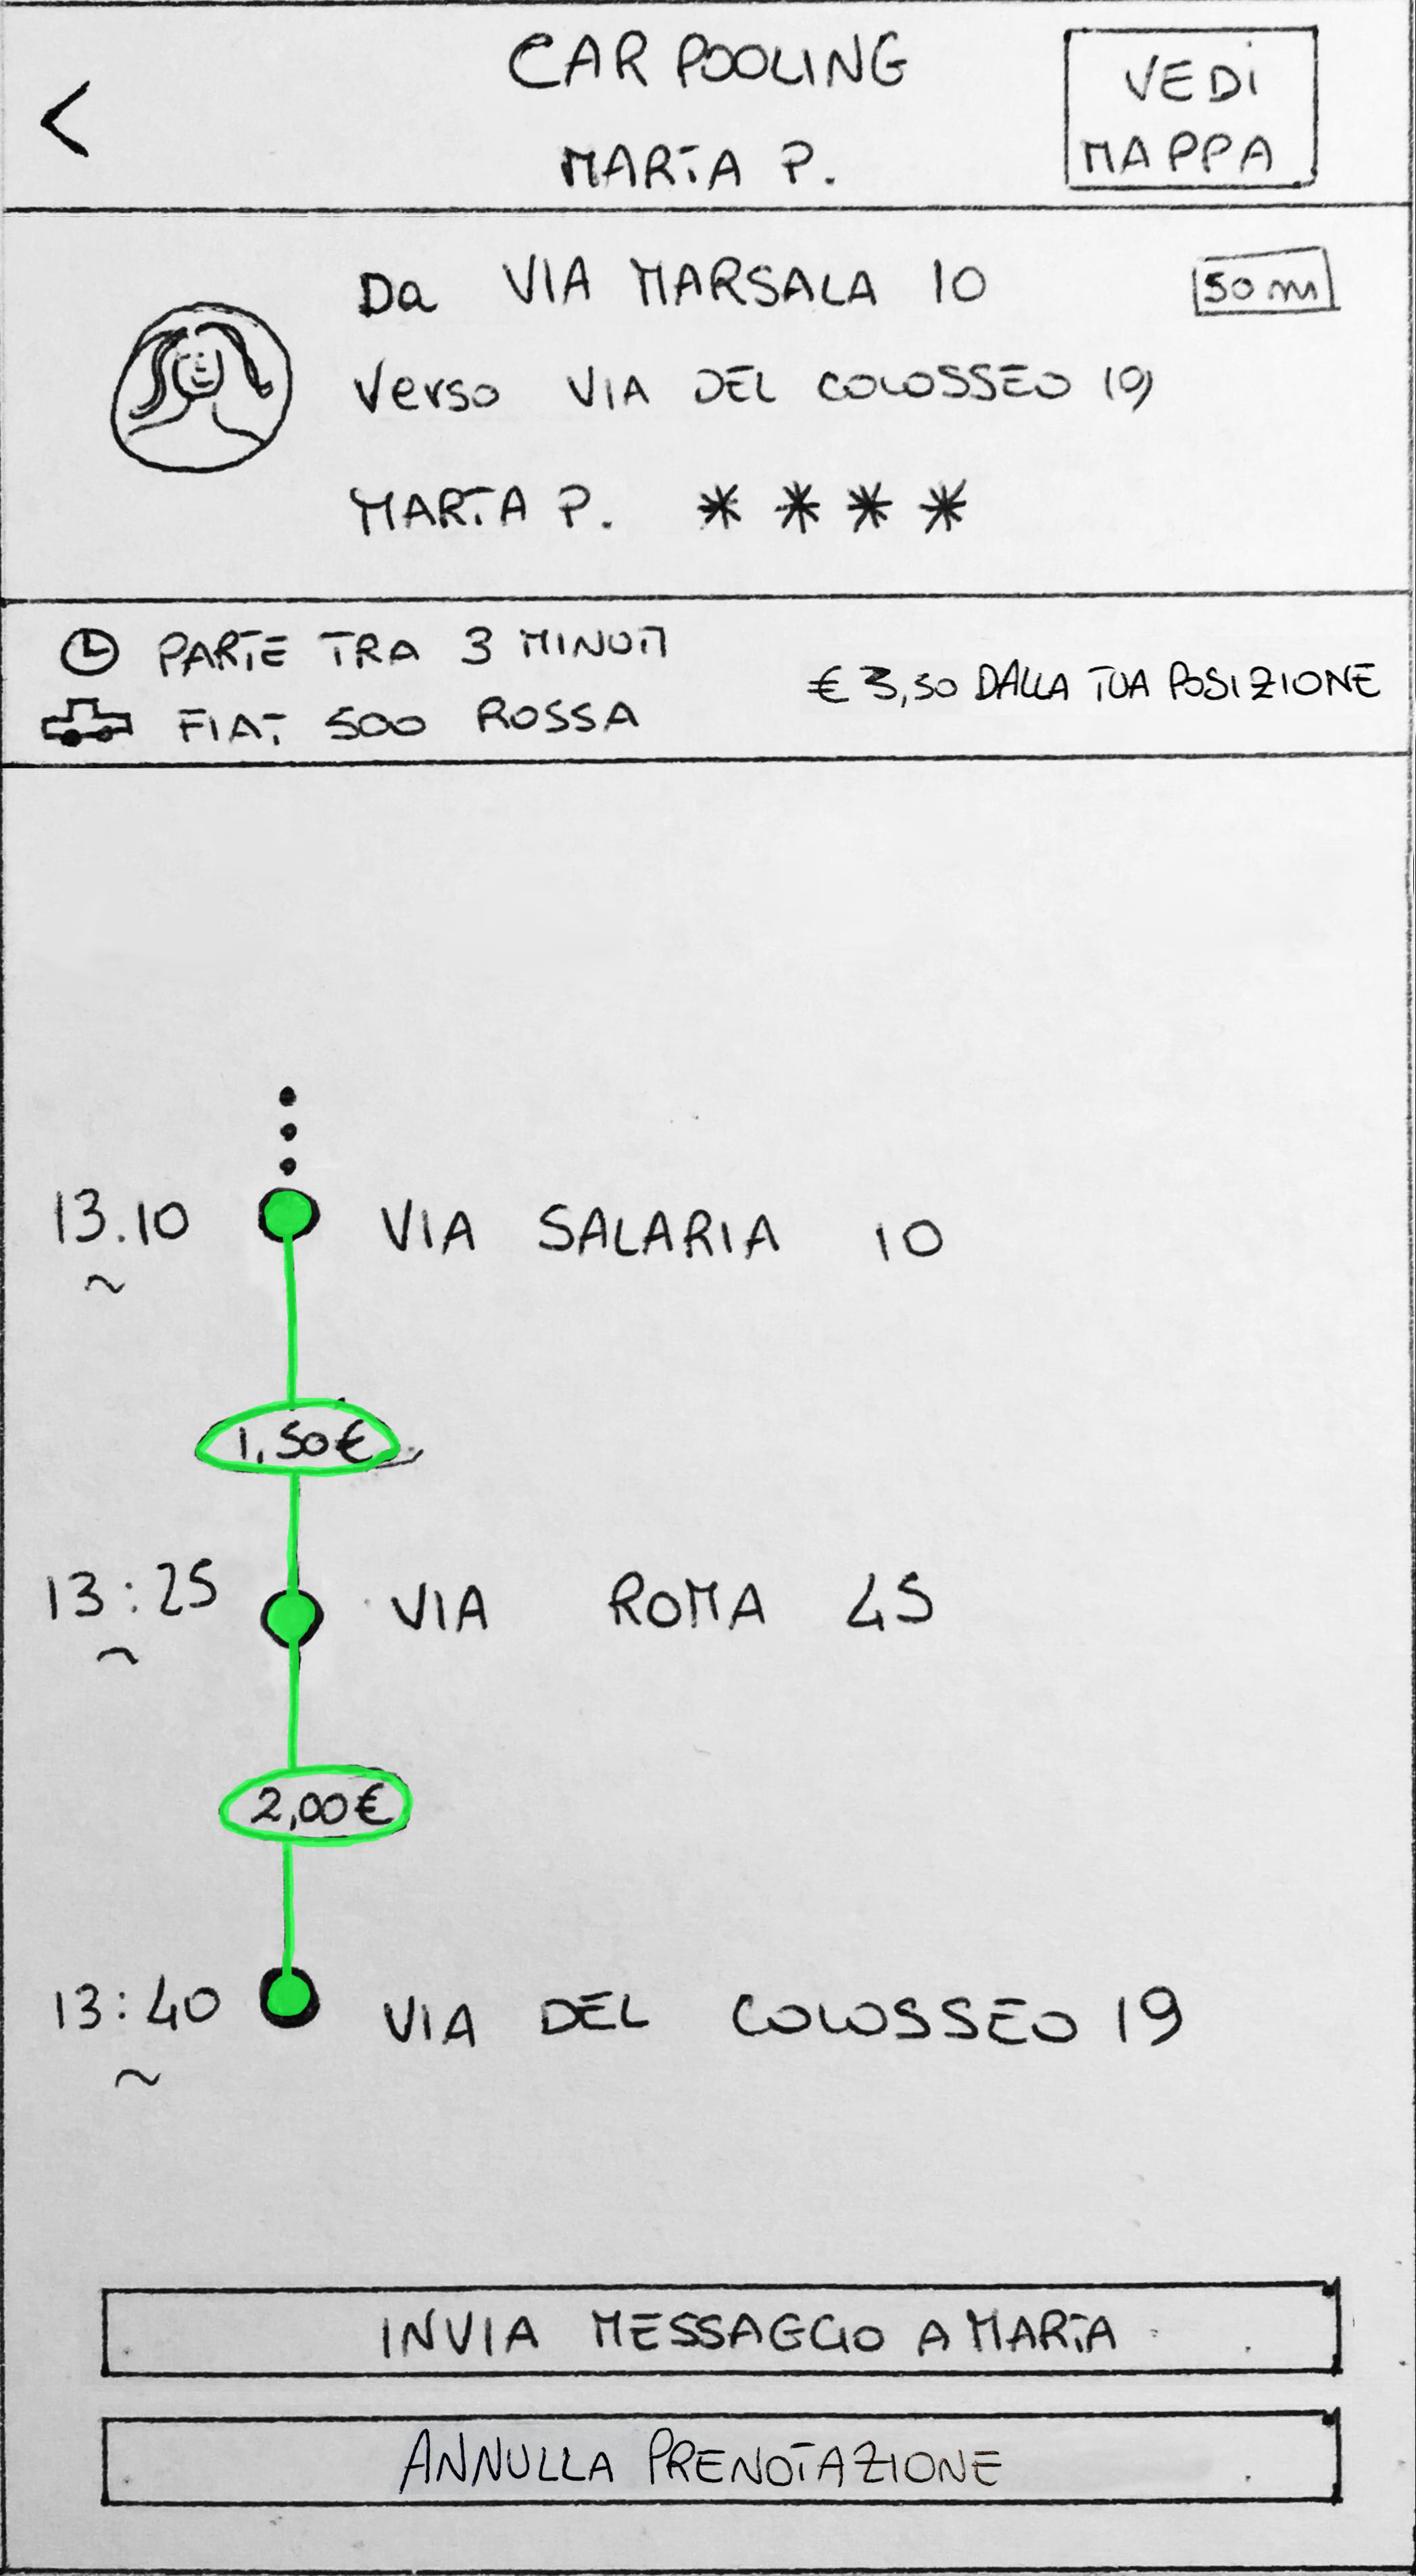 <
CAR POOLING
MARTA P.
VEDI
MAPPA
Da VIA MARSALA 10
50 m
Verso VIA DEL COLOSSEO 19
MARTA P. * * * *
PARTE TRA 3 MINUTI
€ 3,50 DALLA TUA POSIZIONE
FIAT 500 ROSSA
13.10 VIA SALARIA 10
~
1,50€
13:25 VIA ROMA 45
~
2,00€
13:40 VIA DEL COLOSSEO 19
~
INVIA MESSAGGIO A MARTA
ANNULLA PRENOTAZIONE